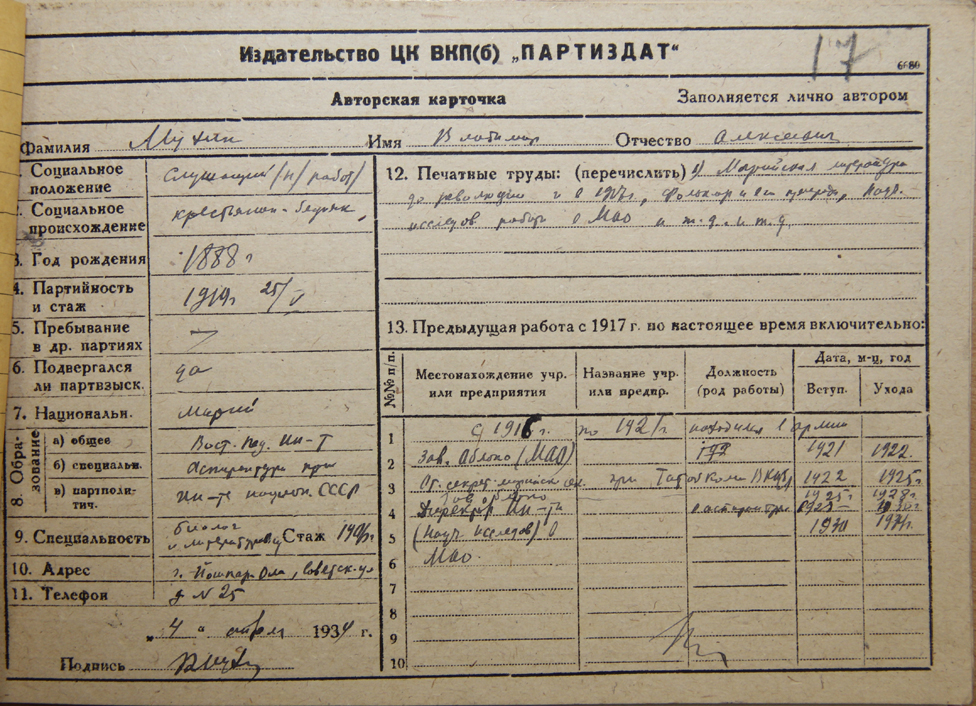 Издательство ЦК ВКП(б) „ПАРТИЗДАТ“
17
6680
Авторская карточка
Заполняется лично автором
Фамилия Мухин Имя Владимир Отчество Алексеевич
Социальное положение Служащий (н/работ)
Социальное происхождение крестьянин-бедняк,
3. Год рождения 1888 г
4. Партийность и стаж 1919 г 25/V
5. Пребывание в др. партиях —
6. Подвергался ли партвзыск. да
7. Националън. Марий
8. Образование
а) общее Вост. Пед. Ин-т
б) специальн. Аспирантура при
в) партполитич. Ин-те национ. СССР
9. Специальность биолог и литературовед Стаж
10. Адрес г. Йошкар Ола, Советск. ул
11. Телефон д N 25
„4“ 1934 г.
Подпись
12. Печатные труды: (перечислить) 1) Марийская литература
до революции и
исследов работы о МАО и т. д. и т. д.
13. Предыдущая работа с 1917 г. по настоящее время включительно:
№№ п/п.
Местонахождение учр. или предприятия
Название учр. или предпр.
Должность (род работы)
Дата, м-ц, год
Вступ.
Ухода
1 г. по 1921 г находился в армии
2 Зав. Облоно (МАО) 1921 1922
3 От. секрет. марийск при Татобкоме ВКПб 1922 1925
Зав облоно 1925 г 1928 г
4 Директор Ин-та
5 (Науч исследов) о 1930
6 МАО
7
8
9
10